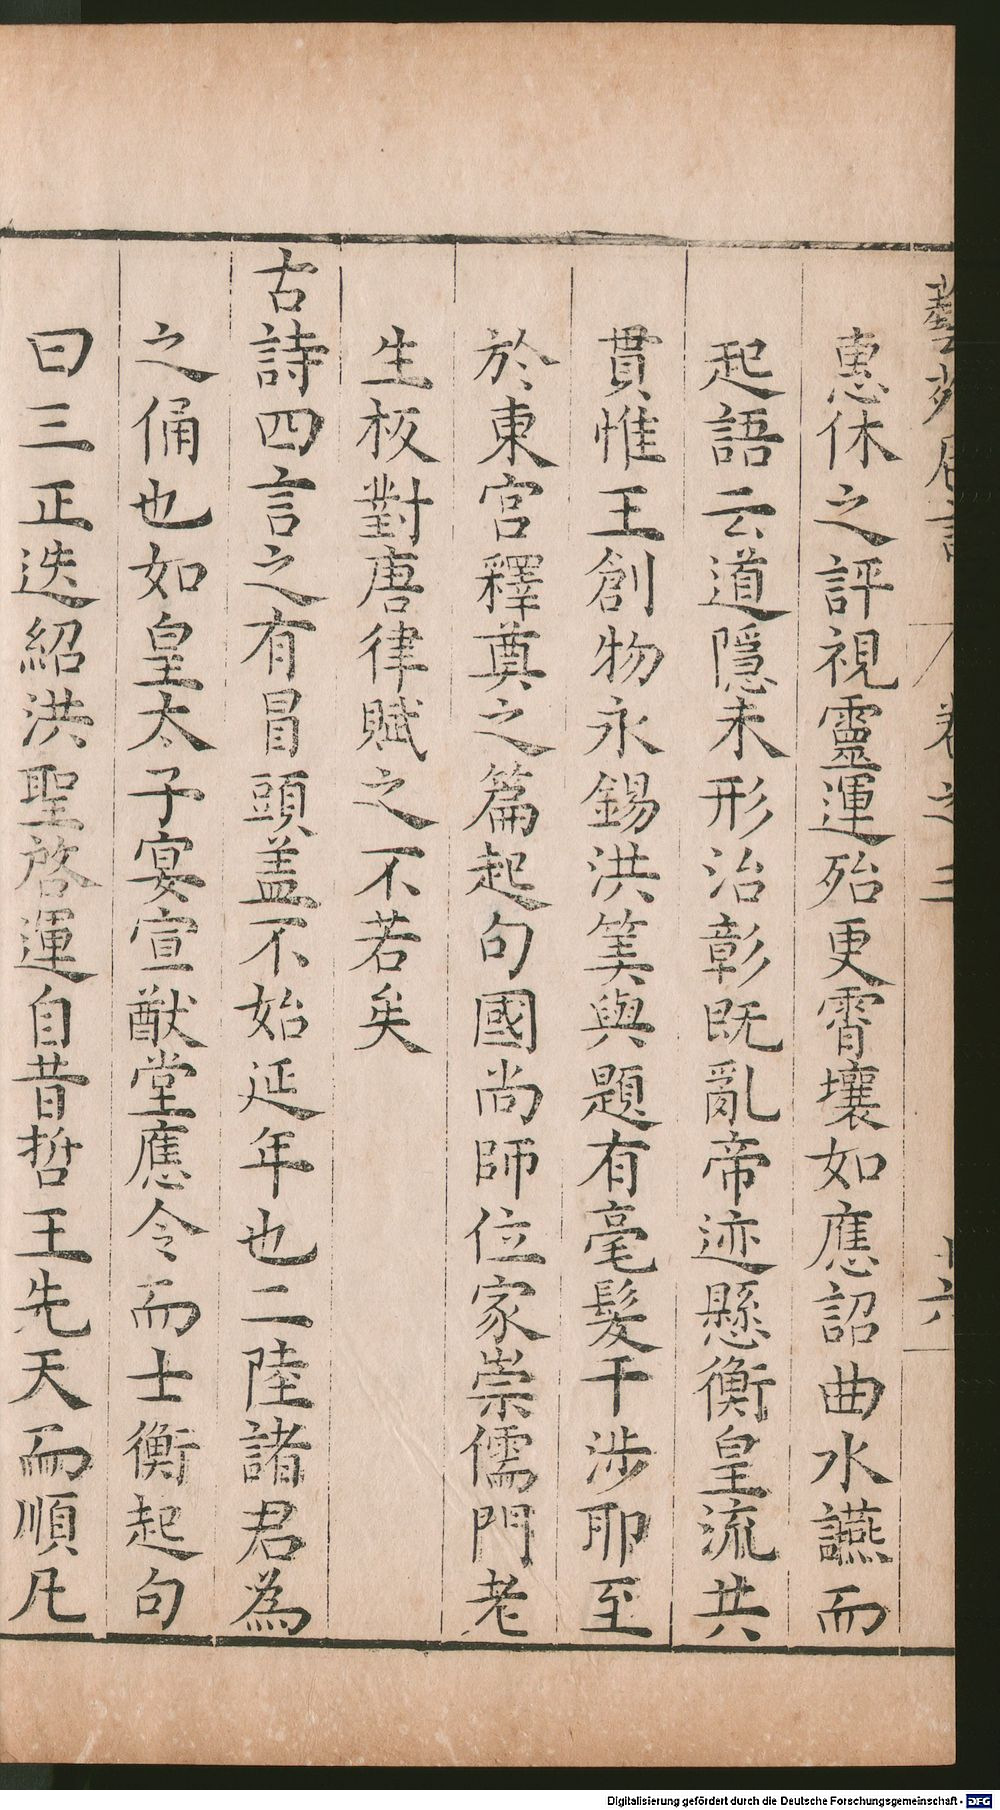 藝苑卮言 卷之三 十六
惠休之評視靈運殆更霄壤如應詔曲水讌而
起語云道隱未形治彰既亂帝迹懸衡皇流共
貫惟王創物永錫洪筭與題有毫髮干涉耶至
於東宮釋奠之篇起句國尚師位家崇儒門老
生板對唐律賦之不若矣
古詩四言之有冒頭盖不始延年也二陸諸君為
之俑也如皇太子宴宣猷堂應令而士衡起句
曰三正迭紹洪聖啓運自昔哲王先天而順凡
Digitalisierung gefördert durch die Deutsche Forschungsgemeinschaft - DFG